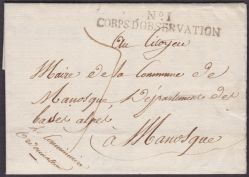 No. 1
CORPS D'OBSERVATION
Au Citoyen
Maire de la Commune de
Manosque, Département des
basses alpes
à Manosque